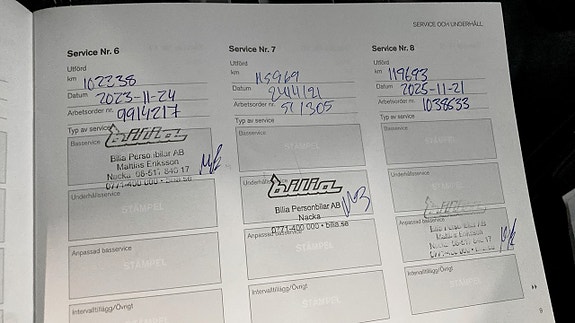 SERVICE OCH UNDERHÅLL
Service Nr. 6
Utförd
km 102238
Datum 2023-11-24
Arbetsorder nr. 9914217
Typ av service
Basservice
bilia
Bilia Personbilar AB
Mattias Eriksson
Nacka 08-517 840 17
0771-400 000 • bilia.se
Underhållsservice
STÄMPEL
Anpassad basservice
STÄMPEL
Intervalltillägg/Övrigt
Service Nr. 7
Utförd
km 115969
Datum
Arbetsorder nr. 511305
Typ av service
Basservice
STÄMPEL
Underhållsservice
bilia
Bilia Personbilar AB
Nacka
0771-400 000 • bilia.se
Anpassad basservice
STÄMPEL
Intervalltillägg/Övrigt
STÄMPEL
Service Nr. 8
Utförd
km 119693
Datum 2025-11-21
Arbetsorder nr. 1038833
Typ av service
Basservice
STÄMPEL
Underhållsservice
STÄMPEL
Anpassad basservice
bilia
Bilia Personbilar AB
Mattias Eriksson
Nacka 08-517 840 17
0771-400 000 • bilia.se
Intervalltillägg/Övrigt
STÄMPEL
"
9